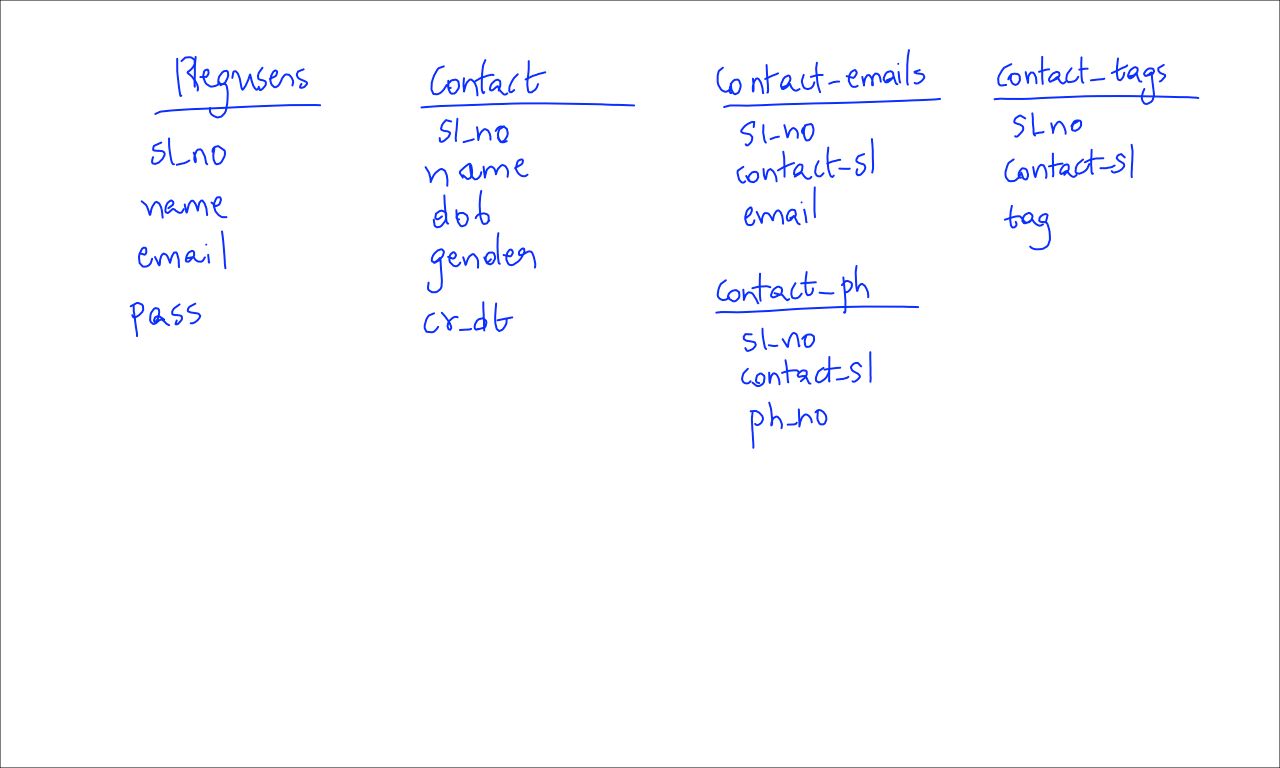 Regusers
sl_no
name
email
pass
Contact
sl_no
name
dob
gender
cr_dt
Contact_emails
sl_no
contact_sl
email
Contact_ph
sl_no
contact_sl
ph_no
Contact_tags
sl_no
contact_sl
tag